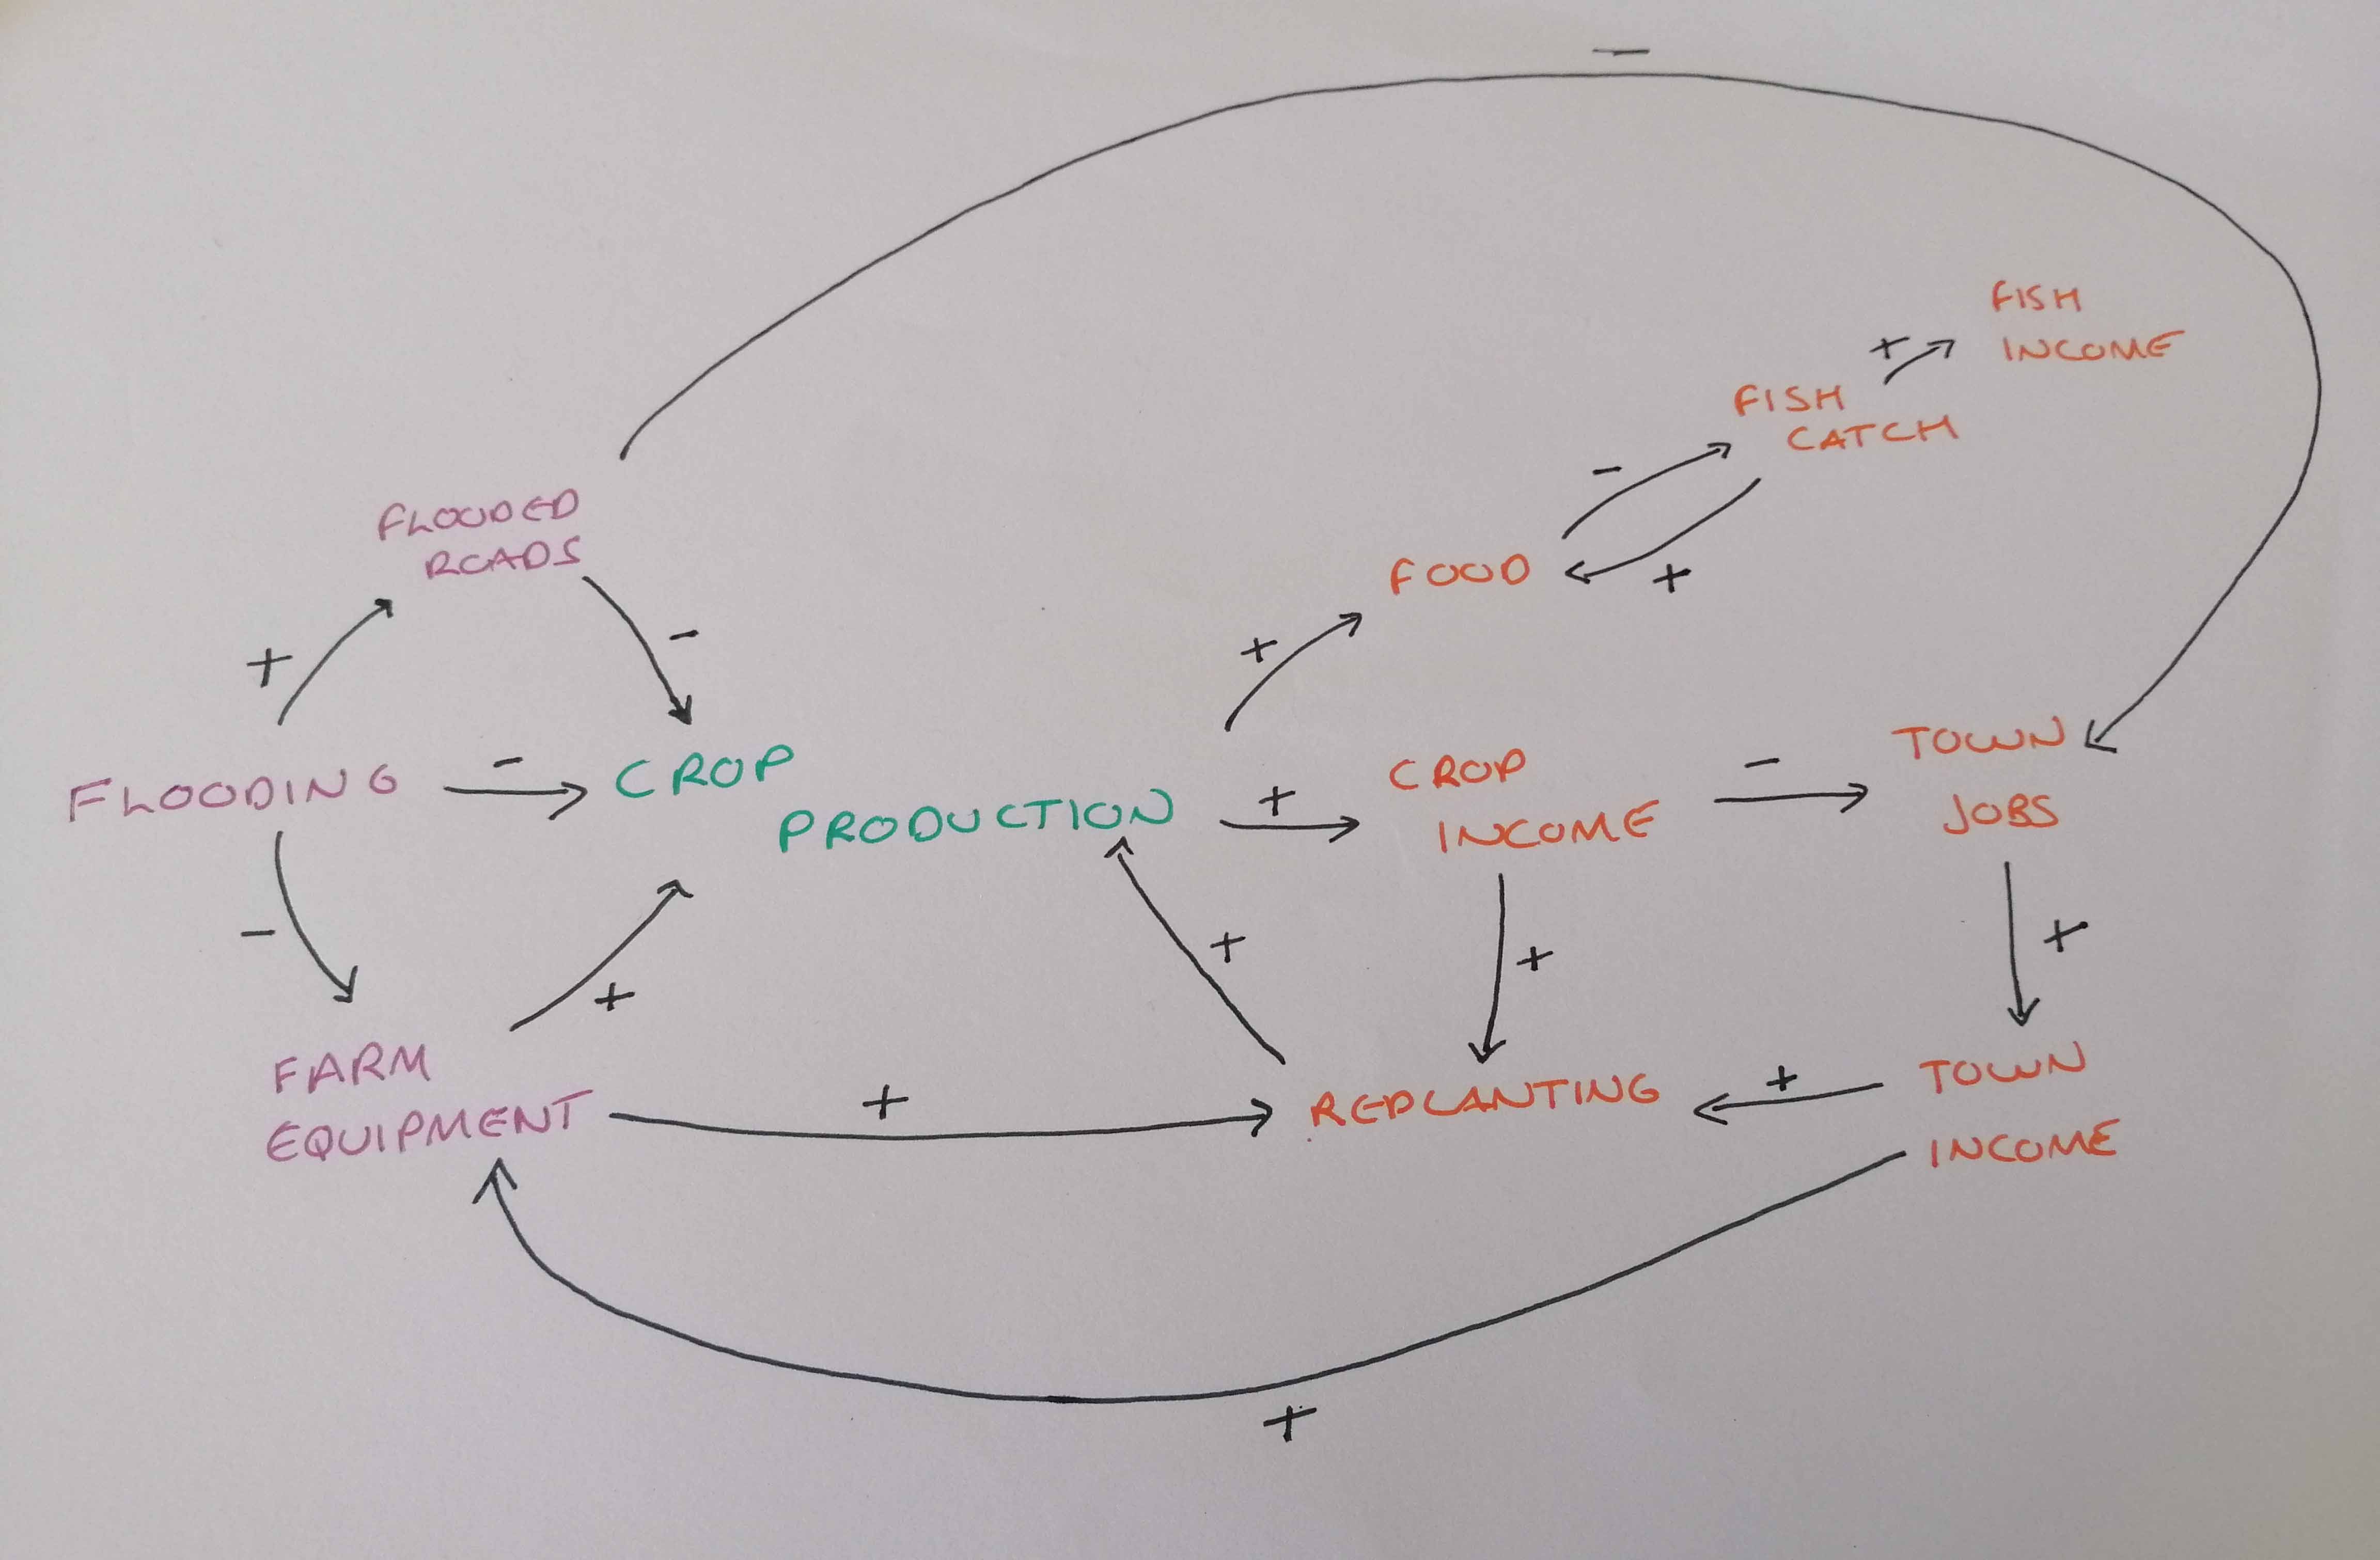 -
FISH
INCOME
+
FISH
CATCH
-
+
FLOODED
ROADS
FOOD
+
-
+
FLOODING
-
CROP
PRODUCTION
+
CROP
INCOME
-
TOWN
JOBS
-
+
+
+
+
FARM
EQUIPMENT
+
REPLANTING
+
TOWN
INCOME
+